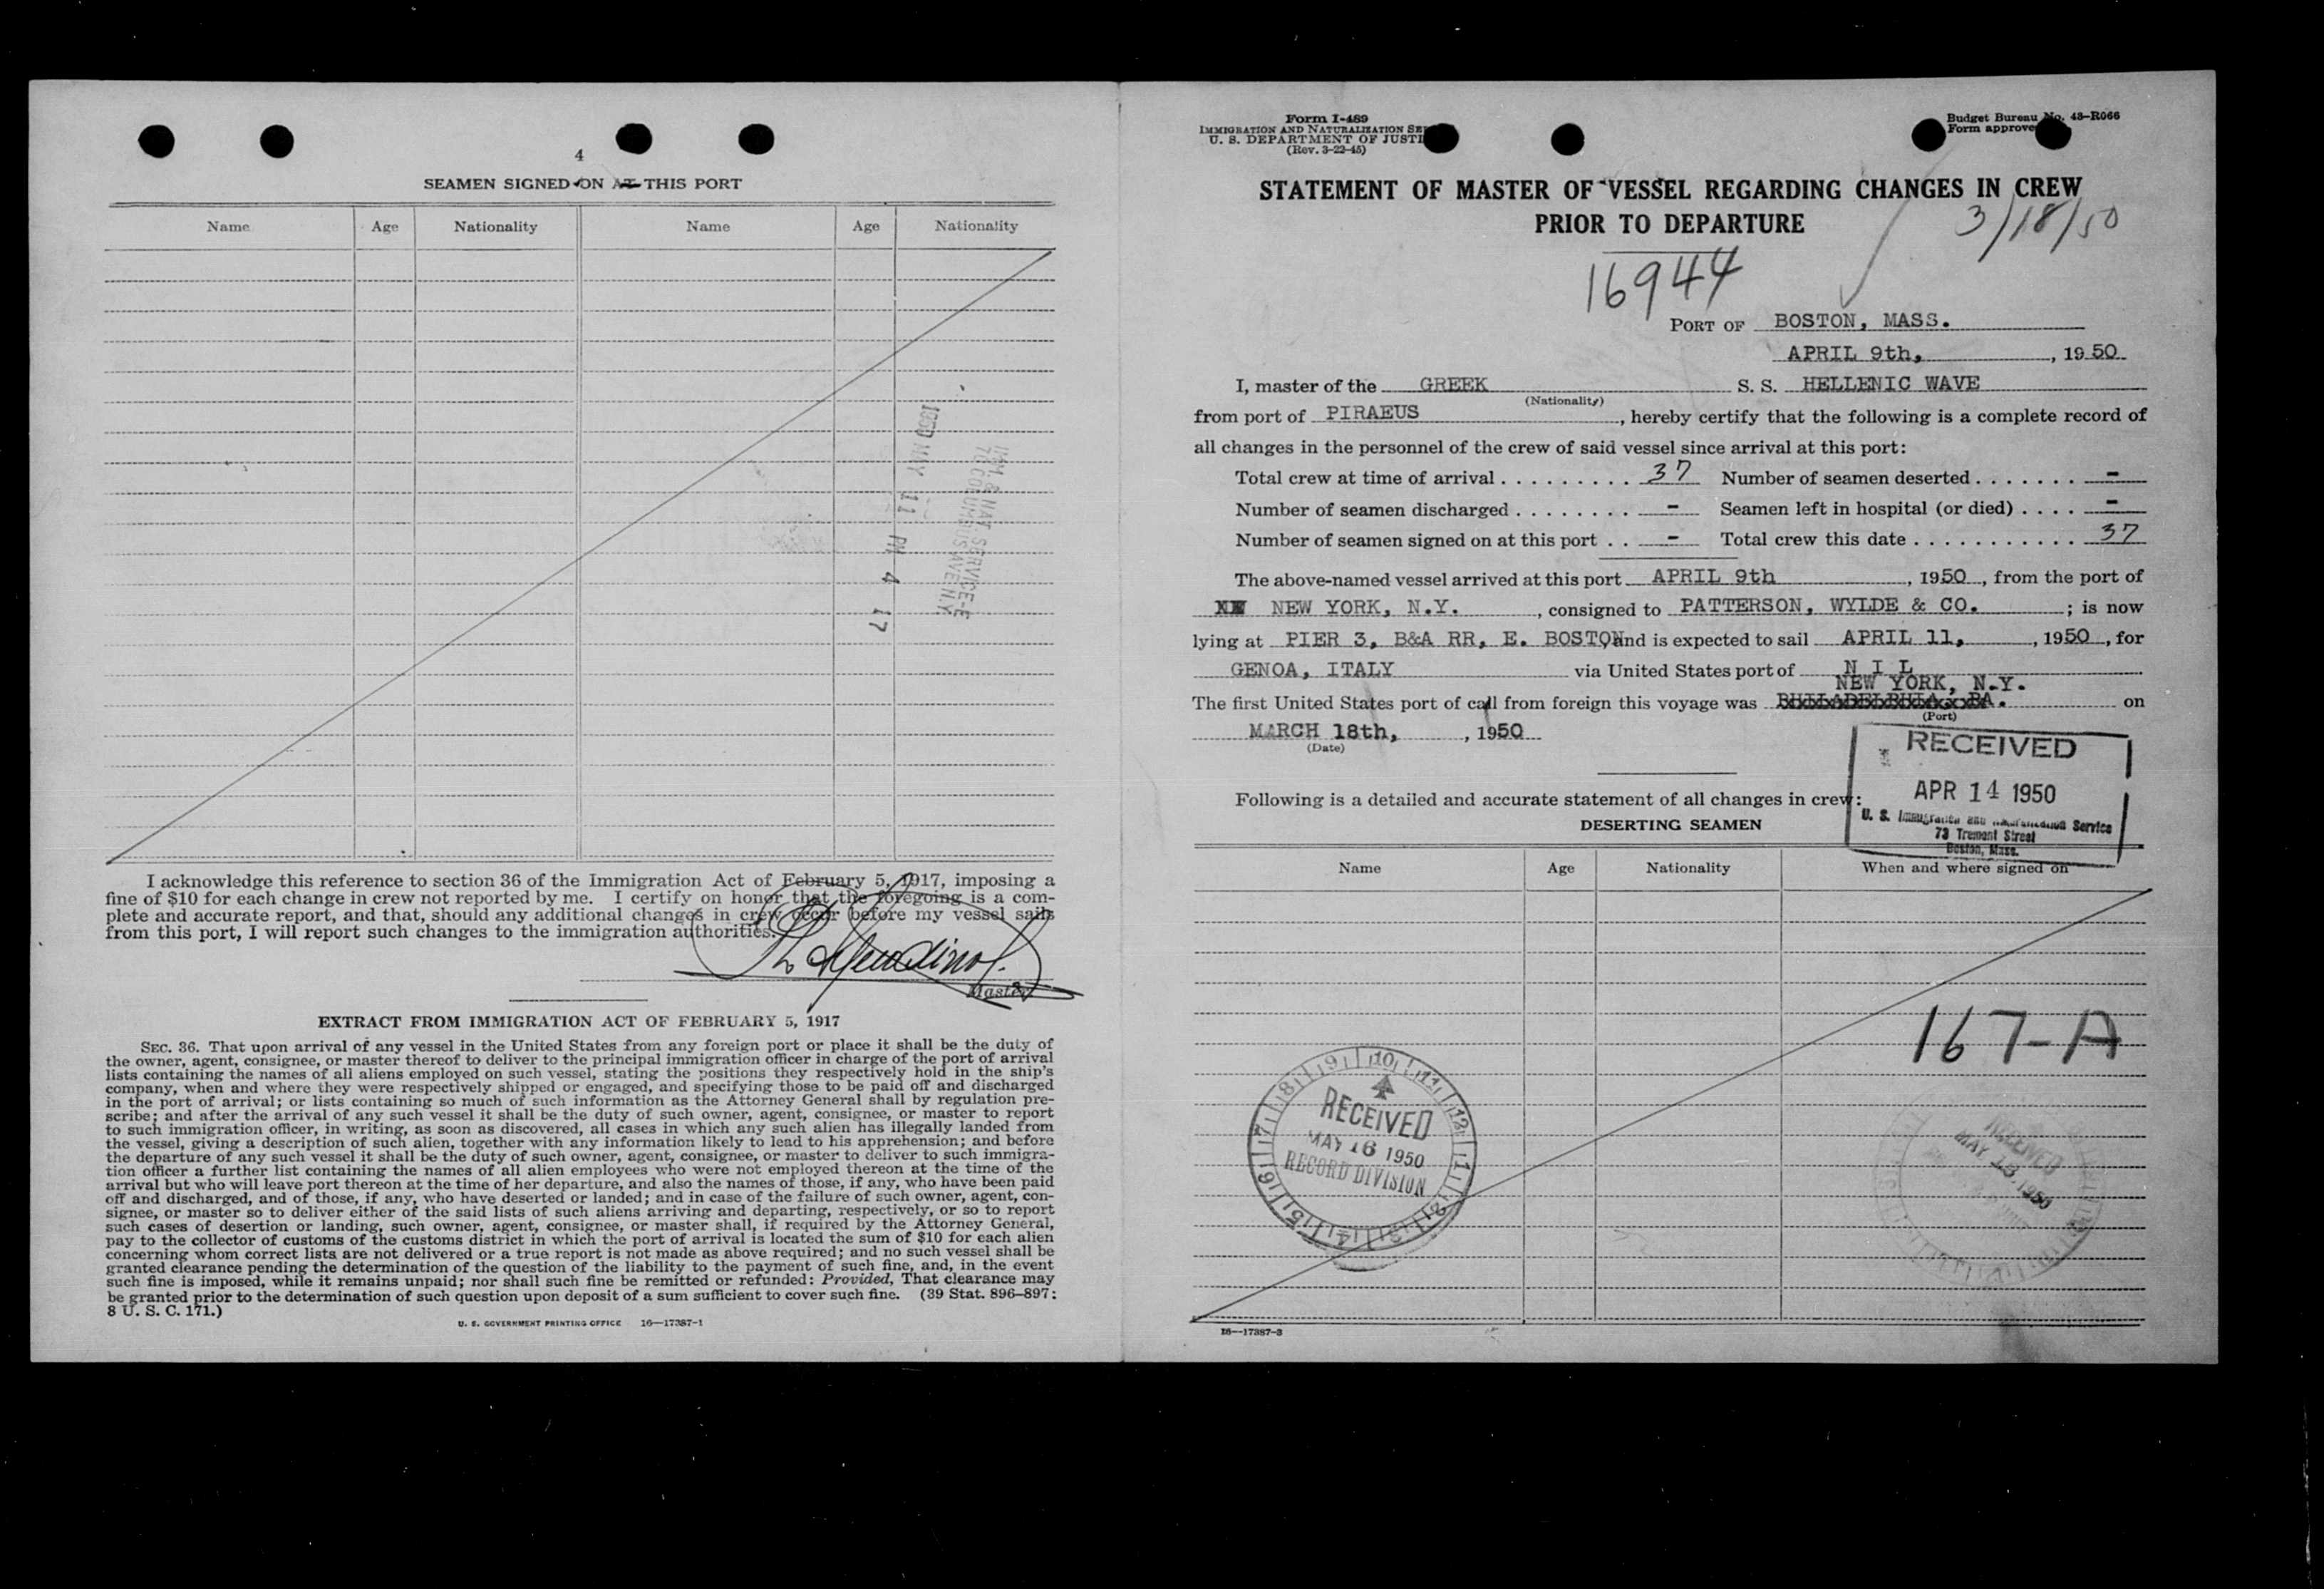 4
SEAMEN SIGNED ON AT THIS PORT
Name Age Nationality Name Age Nationality
1950 MAY 11 PM 4 17
IMM. & NAT. SERVICE-E
70 COLUMBUS AVE N.Y.
I acknowledge this reference to section 36 of the Immigration Act of February 5, 1917, imposing a
fine of $10 for each change in crew not reported by me. I certify on honor that the foregoing is a com-
plete and accurate report, and that, should any additional changes in crew occur before my vessel sails
from this port, I will report such changes to the immigration authorities.
Master
EXTRACT FROM IMMIGRATION ACT OF FEBRUARY 5, 1917
SEC. 36. That upon arrival of any vessel in the United States from any foreign port or place it shall be the duty of
the owner, agent, consignee, or master thereof to deliver to the principal immigration officer in charge of the port of arrival
lists containing the names of all aliens employed on such vessel, stating the positions they respectively hold in the ship's
company, when and where they were respectively shipped or engaged, and specifying those to be paid off and discharged
in the port of arrival; or lists containing so much of such information as the Attorney General shall by regulation pre-
scribe; and after the arrival of any such vessel it shall be the duty of such owner, agent, consignee, or master to report
to such immigration officer, in writing, as soon as discovered, all cases in which any such alien has illegally landed from
the vessel, giving a description of such alien, together with any information likely to lead to his apprehension; and before
the departure of any such vessel it shall be the duty of such owner, agent, consignee, or master to deliver to such immigra-
tion officer a further list containing the names of all alien employees who were not employed thereon at the time of the
arrival but who will leave port thereon at the time of her departure, and also the names of those, if any, who have been paid
off and discharged, and of those, if any, who have deserted or landed; and in case of the failure of such owner, agent, con-
signee, or master so to deliver either of the said lists of such aliens arriving and departing, respectively, or so to report
such cases of desertion or landing, such owner, agent, consignee, or master shall, if required by the Attorney General,
pay to the collector of customs of the customs district in which the port of arrival is located the sum of $10 for each alien
concerning whom correct lists are not delivered or a true report is not made as above required; and no such vessel shall be
granted clearance pending the determination of the question of the liability to the payment of such fine, and, in the event
such fine is imposed, while it remains unpaid; nor shall such fine be remitted or refunded: Provided, That clearance may
be granted prior to the determination of such question upon deposit of a sum sufficient to cover such fine. (39 Stat. 896–897;
8 U. S. C. 171.)
U. S. GOVERNMENT PRINTING OFFICE 16—17387-1
Form I-489
IMMIGRATION AND NATURALIZATION SE
U. S. DEPARTMENT OF JUSTI
(Rev. 3-22-45)
Budget Bureau No. 43-R066
Form approve
STATEMENT OF MASTER OF VESSEL REGARDING CHANGES IN CREW
PRIOR TO DEPARTURE
3/18/50
16944
PORT OF BOSTON, MASS.
APRIL 9th, , 1950
I, master of the GREEK S. S. HELLENIC WAVE
(Nationality)
from port of PIRAEUS , hereby certify that the following is a complete record of
all changes in the personnel of the crew of said vessel since arrival at this port:
Total crew at time of arrival . . . . . . . . . 37 Number of seamen deserted . . . . . . . -
Number of seamen discharged . . . . . . . . - Seamen left in hospital (or died) . . . . -
Number of seamen signed on at this port . . - Total crew this date . . . . . . . . . . . 37
The above-named vessel arrived at this port APRIL 9th , 1950 , from the port of
NEW YORK, N.Y. , consigned to PATTERSON, WYLDE & CO. ; is now
lying at PIER 3, B&A RR, E. BOSTON, and is expected to sail APRIL 11, , 1950 , for
GENOA, ITALY via United States port of N I L
NEW YORK, N.Y.
The first United States port of call from foreign this voyage was PHILADELPHIA, PA. on
(Port)
MARCH 18th, , 1950
(Date)
RECEIVED
APR 14 1950
U. S. Immigration and Naturalization Service
73 Tremont Street
Boston, Mass.
Following is a detailed and accurate statement of all changes in crew:
DESERTING SEAMEN
Name Age Nationality When and where signed on
167-A
9 10 11 12 1 2 3 4 5 6 7 8
RECEIVED
MAY 16 1950
RECORD DIVISION
RECEIVED
MAY 1950
16—17387-3